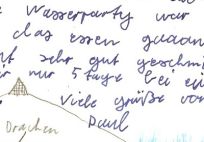 Wasserparty war
das essen
t sehr gut geschm
ir nur 5 tage bei
Viele grüße von
Paul
Drachen